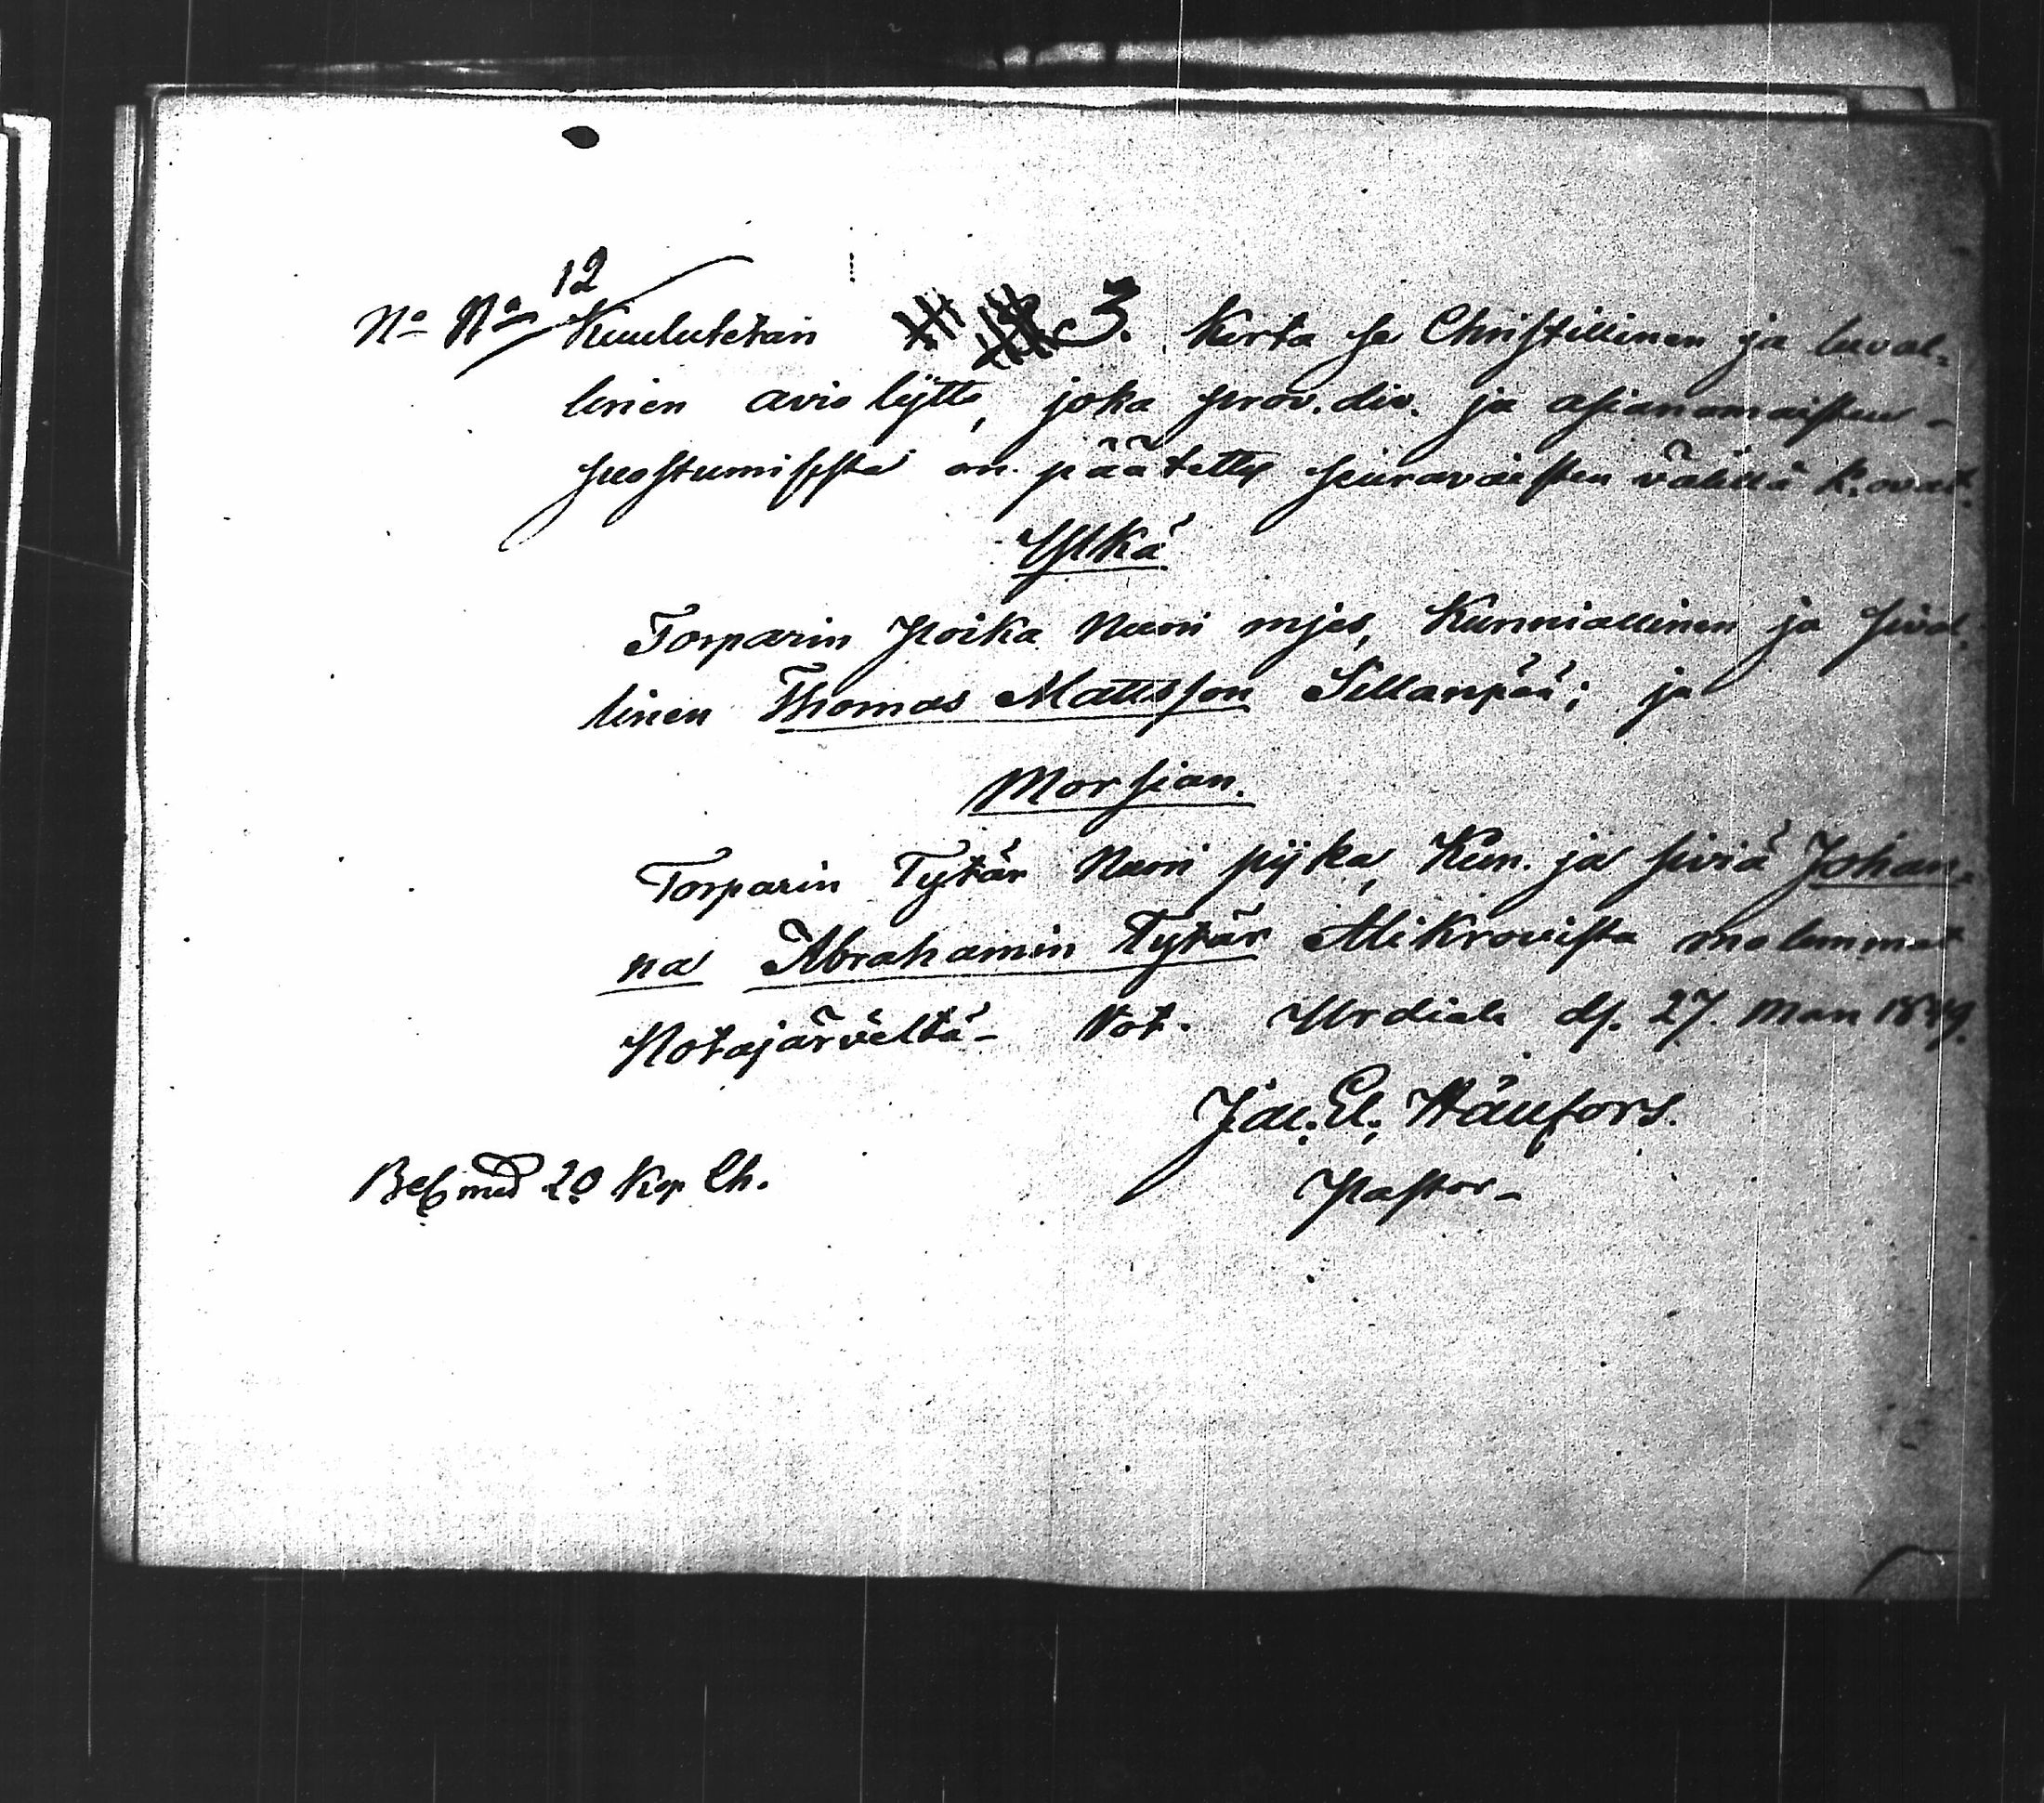 12
No No Kuulutetan 3. Kerta se Christillinen ja luval=
linen avio lijtto, joka prov. div. ja asianomaisten
suostumisesta on päätetty seuravaisten välillä k. ovat.
Ylkä
Torparin Poika Nuori mjes, Kunniallinen ja sival.
linen Thomas Mattsson Sillanpää; ja
Morsian.
Torparin Tytär Nuori pijka, Kun. ja siviä Johan=
na Abrahamin Tytär Alikrovista molemmat
Notajärveltä - Not. Urdiala d. 27. 1849.
Jac. El.
Bet med 20 Kop Ch. Pastor -